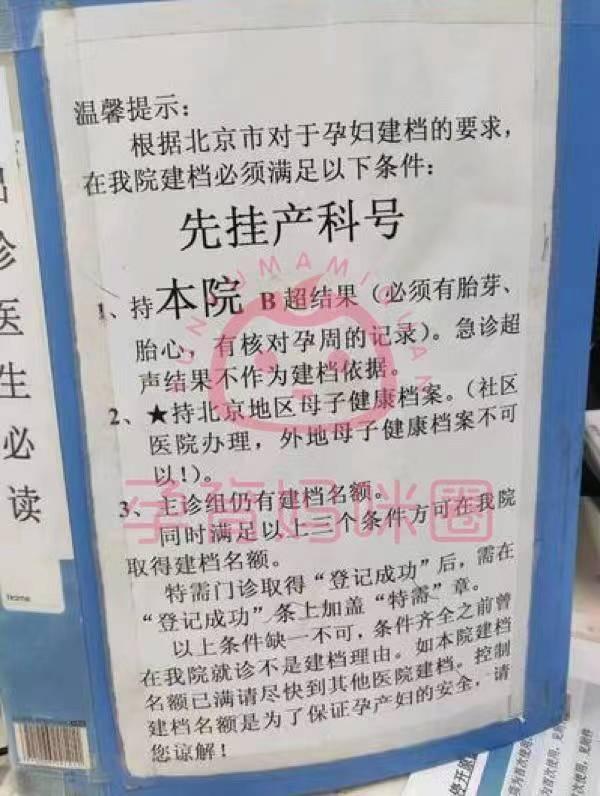 温馨提示：
根据北京市对于孕妇建档的要求，
在我院建档必须满足以下条件：
先挂产科号
1、持本院 B 超结果（必须有胎芽、
胎心，有核对孕周的记录）。急诊超
声结果不作为建档依据。
2、★持北京地区母子健康档案。（社区
医院办理，外地母子健康档案不可
以！）。
3、主诊组仍有建档名额。
同时满足以上三个条件方可在我院
取得建档名额。
特需门诊取得“登记成功”后，需在
“登记成功”条上加盖“特需”章。
以上条件缺一不可，条件齐全之前曾
在我院就诊不是建档理由。如本院建档
名额已满请尽快到其他医院建档。控制
建档名额是为了保证孕产妇的安全，请
您谅解！
诊医生必读
YUNMAMIQUAN
孕妈咪圈